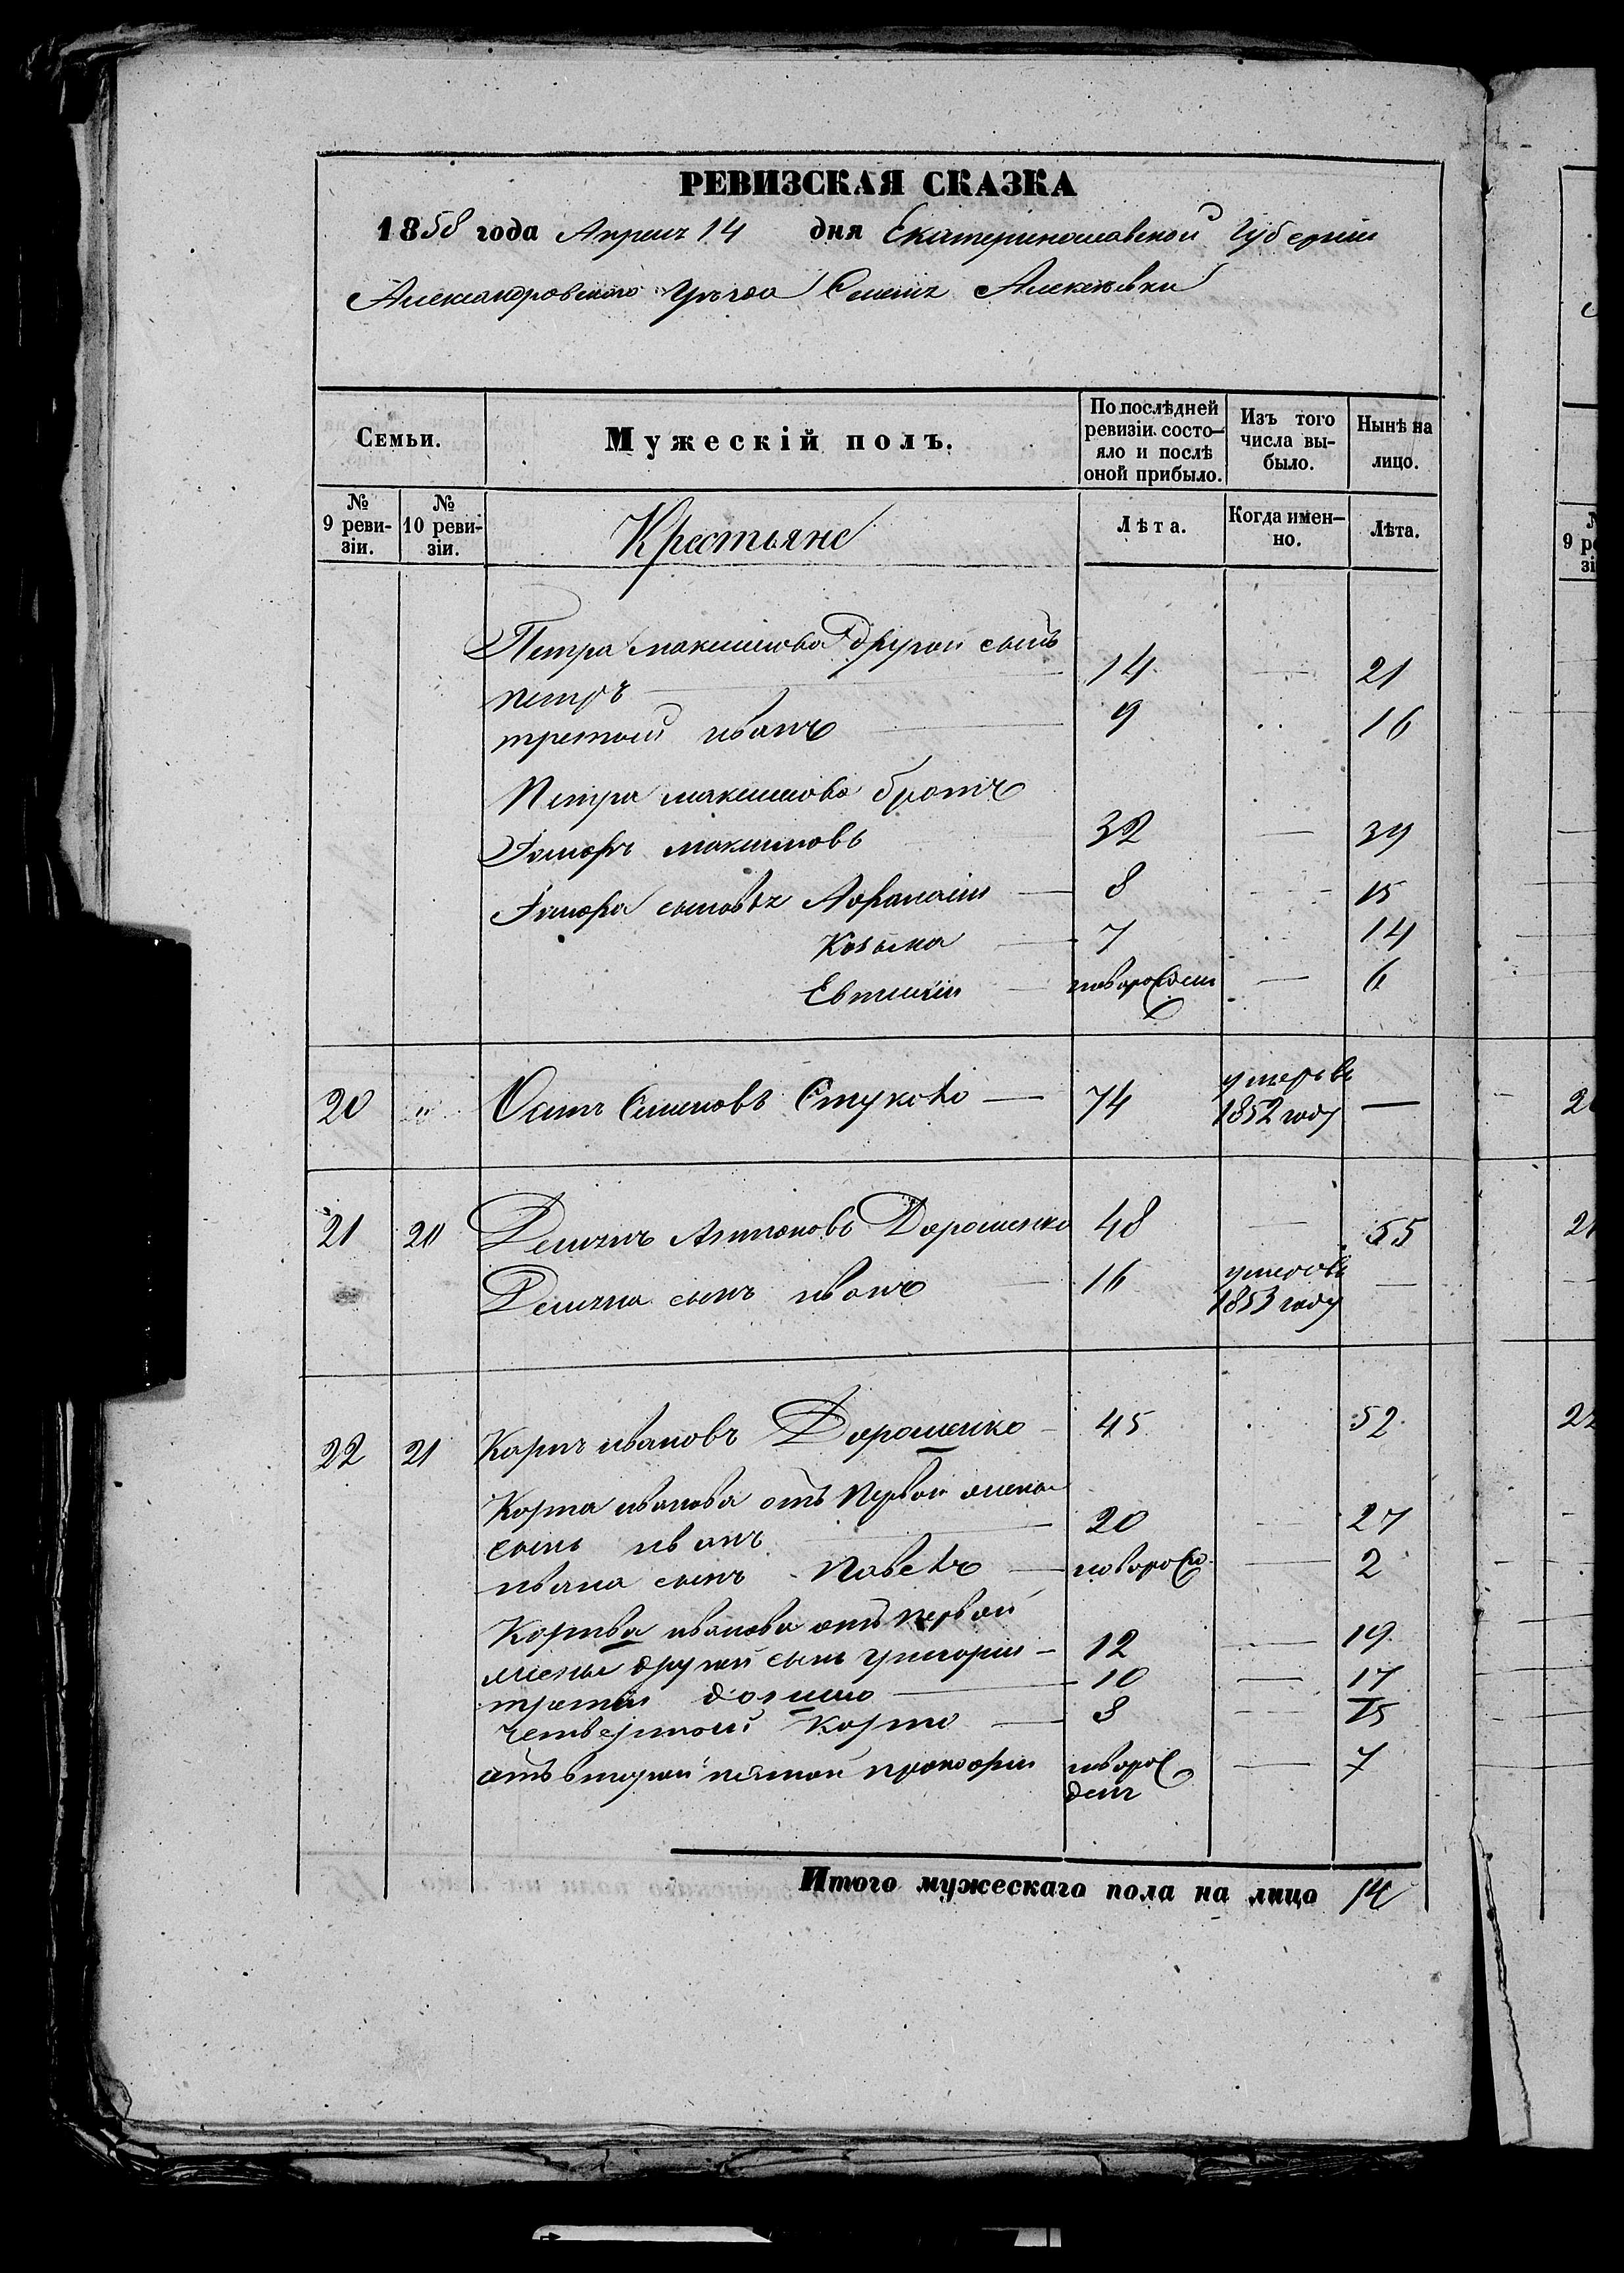 РЕВИЗСКАЯ СКАЗКА
1858 года Апреля 14 дня Екатеринославской Губернии
Александровского Уезда Алексеевки
Семьи.
Мужескій полъ.
По послѣдней ревизіи состояло и послѣ оной прибыло.
Изъ того числа выбыло.
Нынѣ на лицо.
№ 9 ревизіи.
№ 10 ревизіи.
Крестьяне
Лѣта.
Когда именно.
Лѣта.
9 ре
Петра максимова другой сынъ
петръ — 14 — 21
третьий иванъ — 9 .. 16
Петра максимова братъ
максимовъ 32 — 39
сыновья Афанасий — 8 — 15
Козьма — 7 . 14
Евтихий — новорожден — 6
20 " Осипъ Семеновъ Стукало — 74 умеръ въ 1852 году —
21 20 Демианъ Антоновъ Дорошенко 48 — 55
Демиана сынъ иванъ — 16 умеръ въ 1853 году —
22 21 Карпъ ивановъ Дорошенко — 45 . 52
Карпа иванова отъ первой жены
сынъ иванъ — 20 — 27
ивана сынъ Павелъ — новорож — 2
Карпа иванова отъ первой
жены другой сынъ григорий — 12 — 19
третий — 10 — 17
четвертый Карпъ — 8 — 15
отъ второй пятый прокофий новорожденъ — 7
Итого мужескаго пола на лицо 14